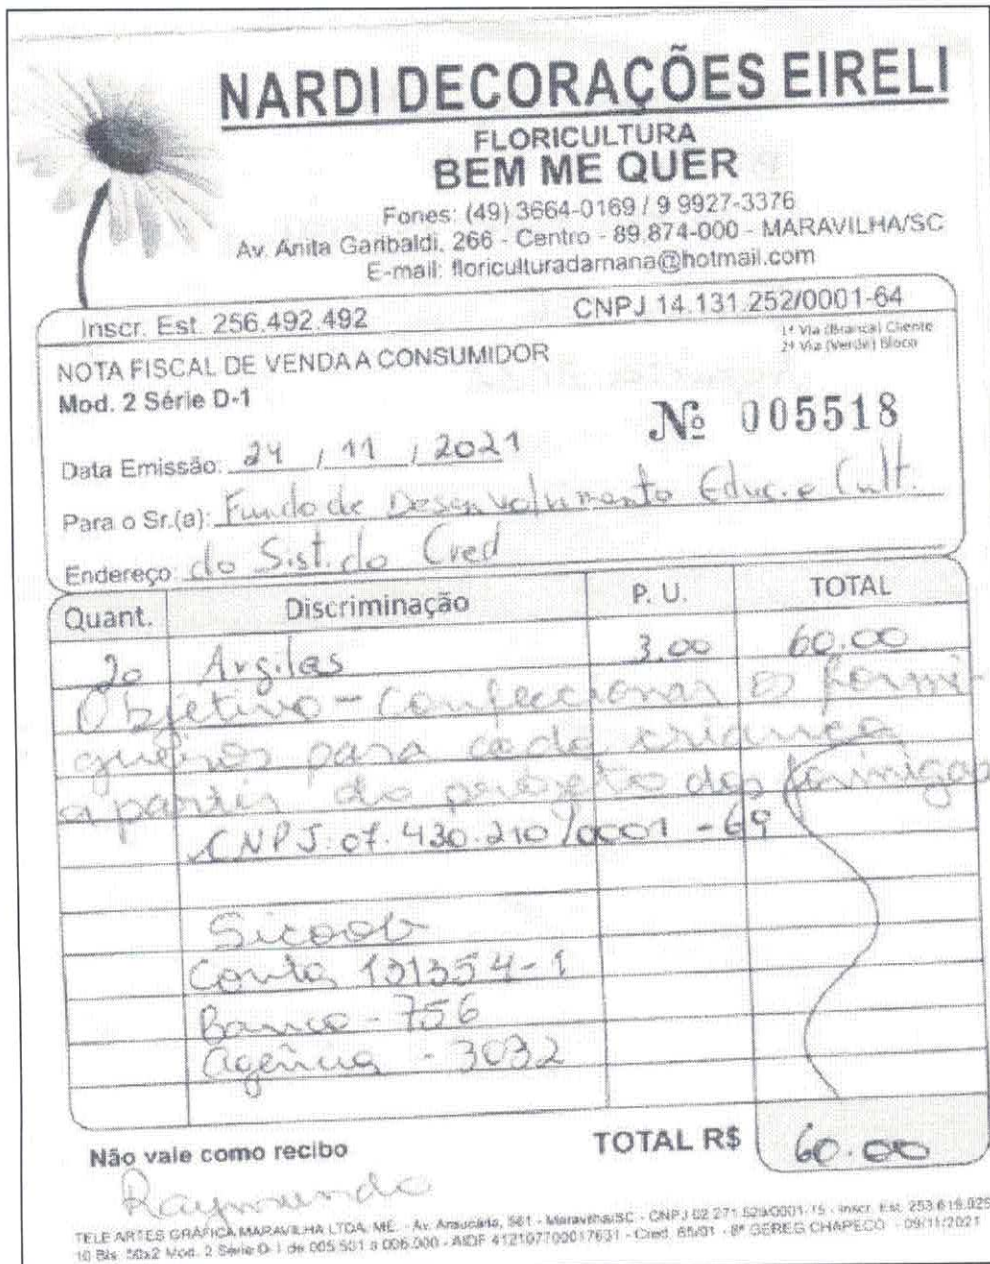 NARDI DECORAÇÕES EIRELI
FLORICULTURA
BEM ME QUER
Fones: (49) 3664-0169 / 9 9927-3376
Av. Anita Garibaldi, 266 - Centro - 89.874-000 - MARAVILHA/SC
E-mail: floriculturadamana@hotmail.com
Inscr. Est. 256.492.492 CNPJ 14.131.252/0001-64
1ª Via (Branca) Cliente
2ª Via (Verde) Bloco
NOTA FISCAL DE VENDA A CONSUMIDOR
Mod. 2 Série D-1
Nº 005518
Data Emissão: 24 / 11 / 2021
Para o Sr.(a): Fundo de Desenvolvimento Educ. e Cult.
Endereço: do Sist. do Cred
Quant. Discriminação P. U. TOTAL
20 Argilas 3.00 60.00
Objetivo - Confeccionar os formi-
gueiros para cada criança
a partir do projeto das formigas
CNPJ: 07.430.210/0001-69
Sicoob
Conta 131354-1
Banco - 756
Agência - 3032
Não vale como recibo TOTAL R$ 60.00
Raymundo
TELE ARTES GRÁFICA MARAVILHA LTDA. ME. - Av. Araucária, 561 - Maravilha/SC - CNPJ 02.271.529/0001-15 - Inscr. Est. 253.619.025
10 Bls. 50x2 Mod. 2 Série D-1 de 005.501 a 006.000 - AIDF 412107700017631 - Cred. 65/01 - 8ª GEREG CHAPECÓ - 09/11/2021